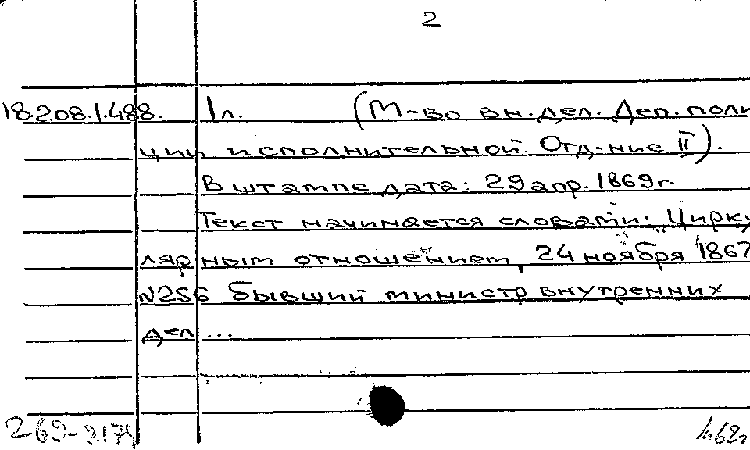 2
18.208.1.488. 1л. (М-во вн.дел. Деп.поли
ции исполнительной. Отд-ние II).
В штампе дата: 29 апр. 1869г.
Текст начинается словами: Цирку
лярным отношением, 24 ноября 1867
N256 бывший министр внутренних
дел...